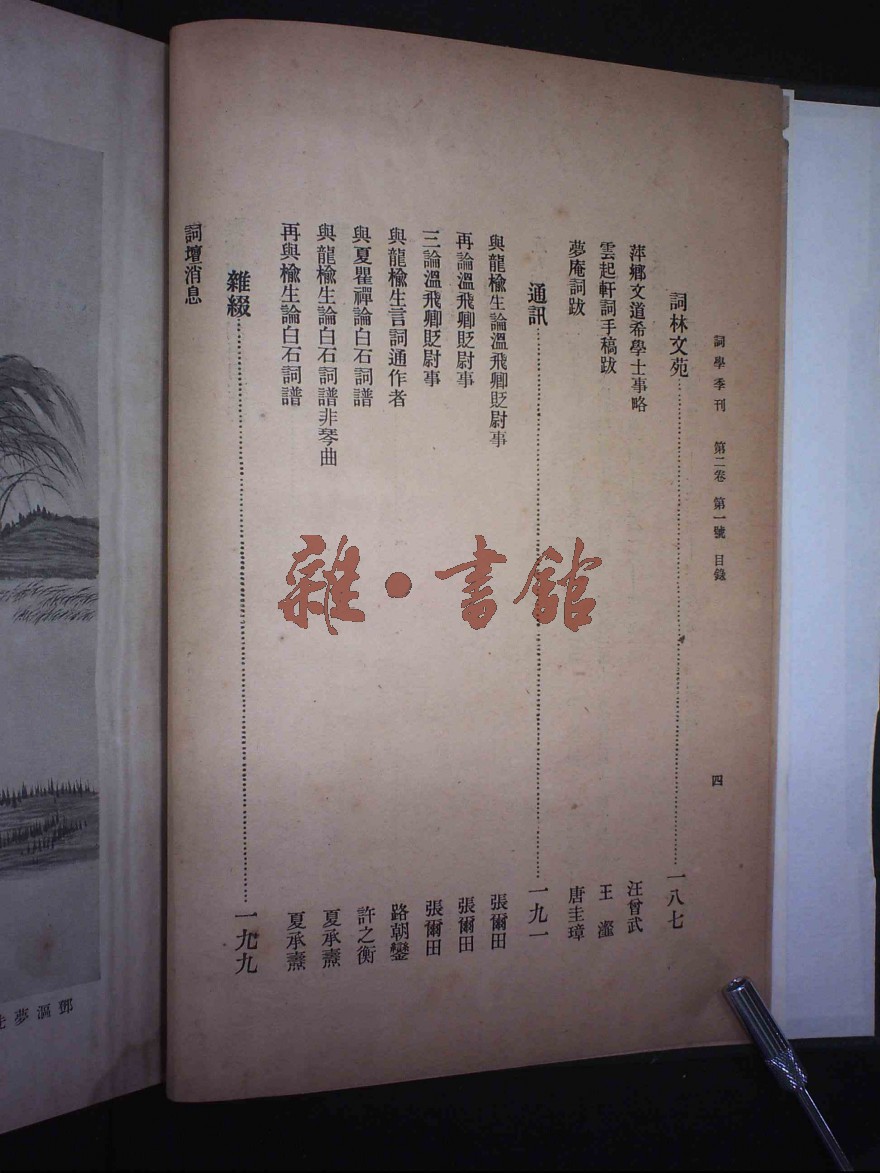 詞學季刊 第二卷 第一號 目錄 四
詞林文苑 一八七
萍鄉文道希學士事略 汪曾武
雲起軒詞手稿跋 王瀣
夢庵詞跋 唐圭璋
通訊 一九一
與龍楡生論溫飛卿貶尉事 張爾田
再論溫飛卿貶尉事 張爾田
三論溫飛卿貶尉事 張爾田
與龍楡生言詞通作者 路朝鑾
與夏瞿禪論白石詞譜 許之衡
與龍楡生論白石詞譜非琴曲 夏承燾
再與楡生論白石詞譜 夏承燾
雜綴 一九九
詞壇消息
雜·書館
鄧漚夢